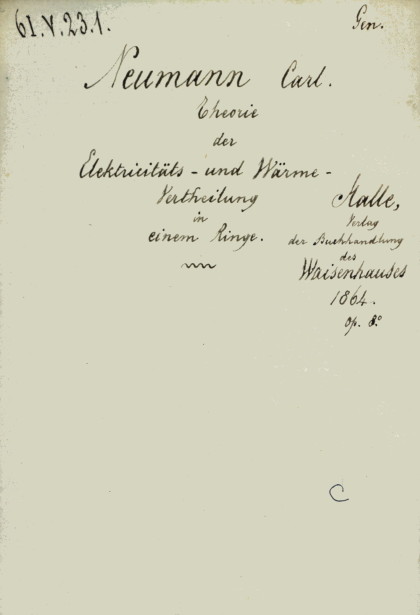 61.V.23.1.
Gen.
Neumann Carl.
Theorie
der
Elektricitäts - und Wärme -
Vertheilung
in
einem Ringe.
Halle,
Verlag
der Buchhandlung
des
Waisenhauses
1864.
op. 8°
C